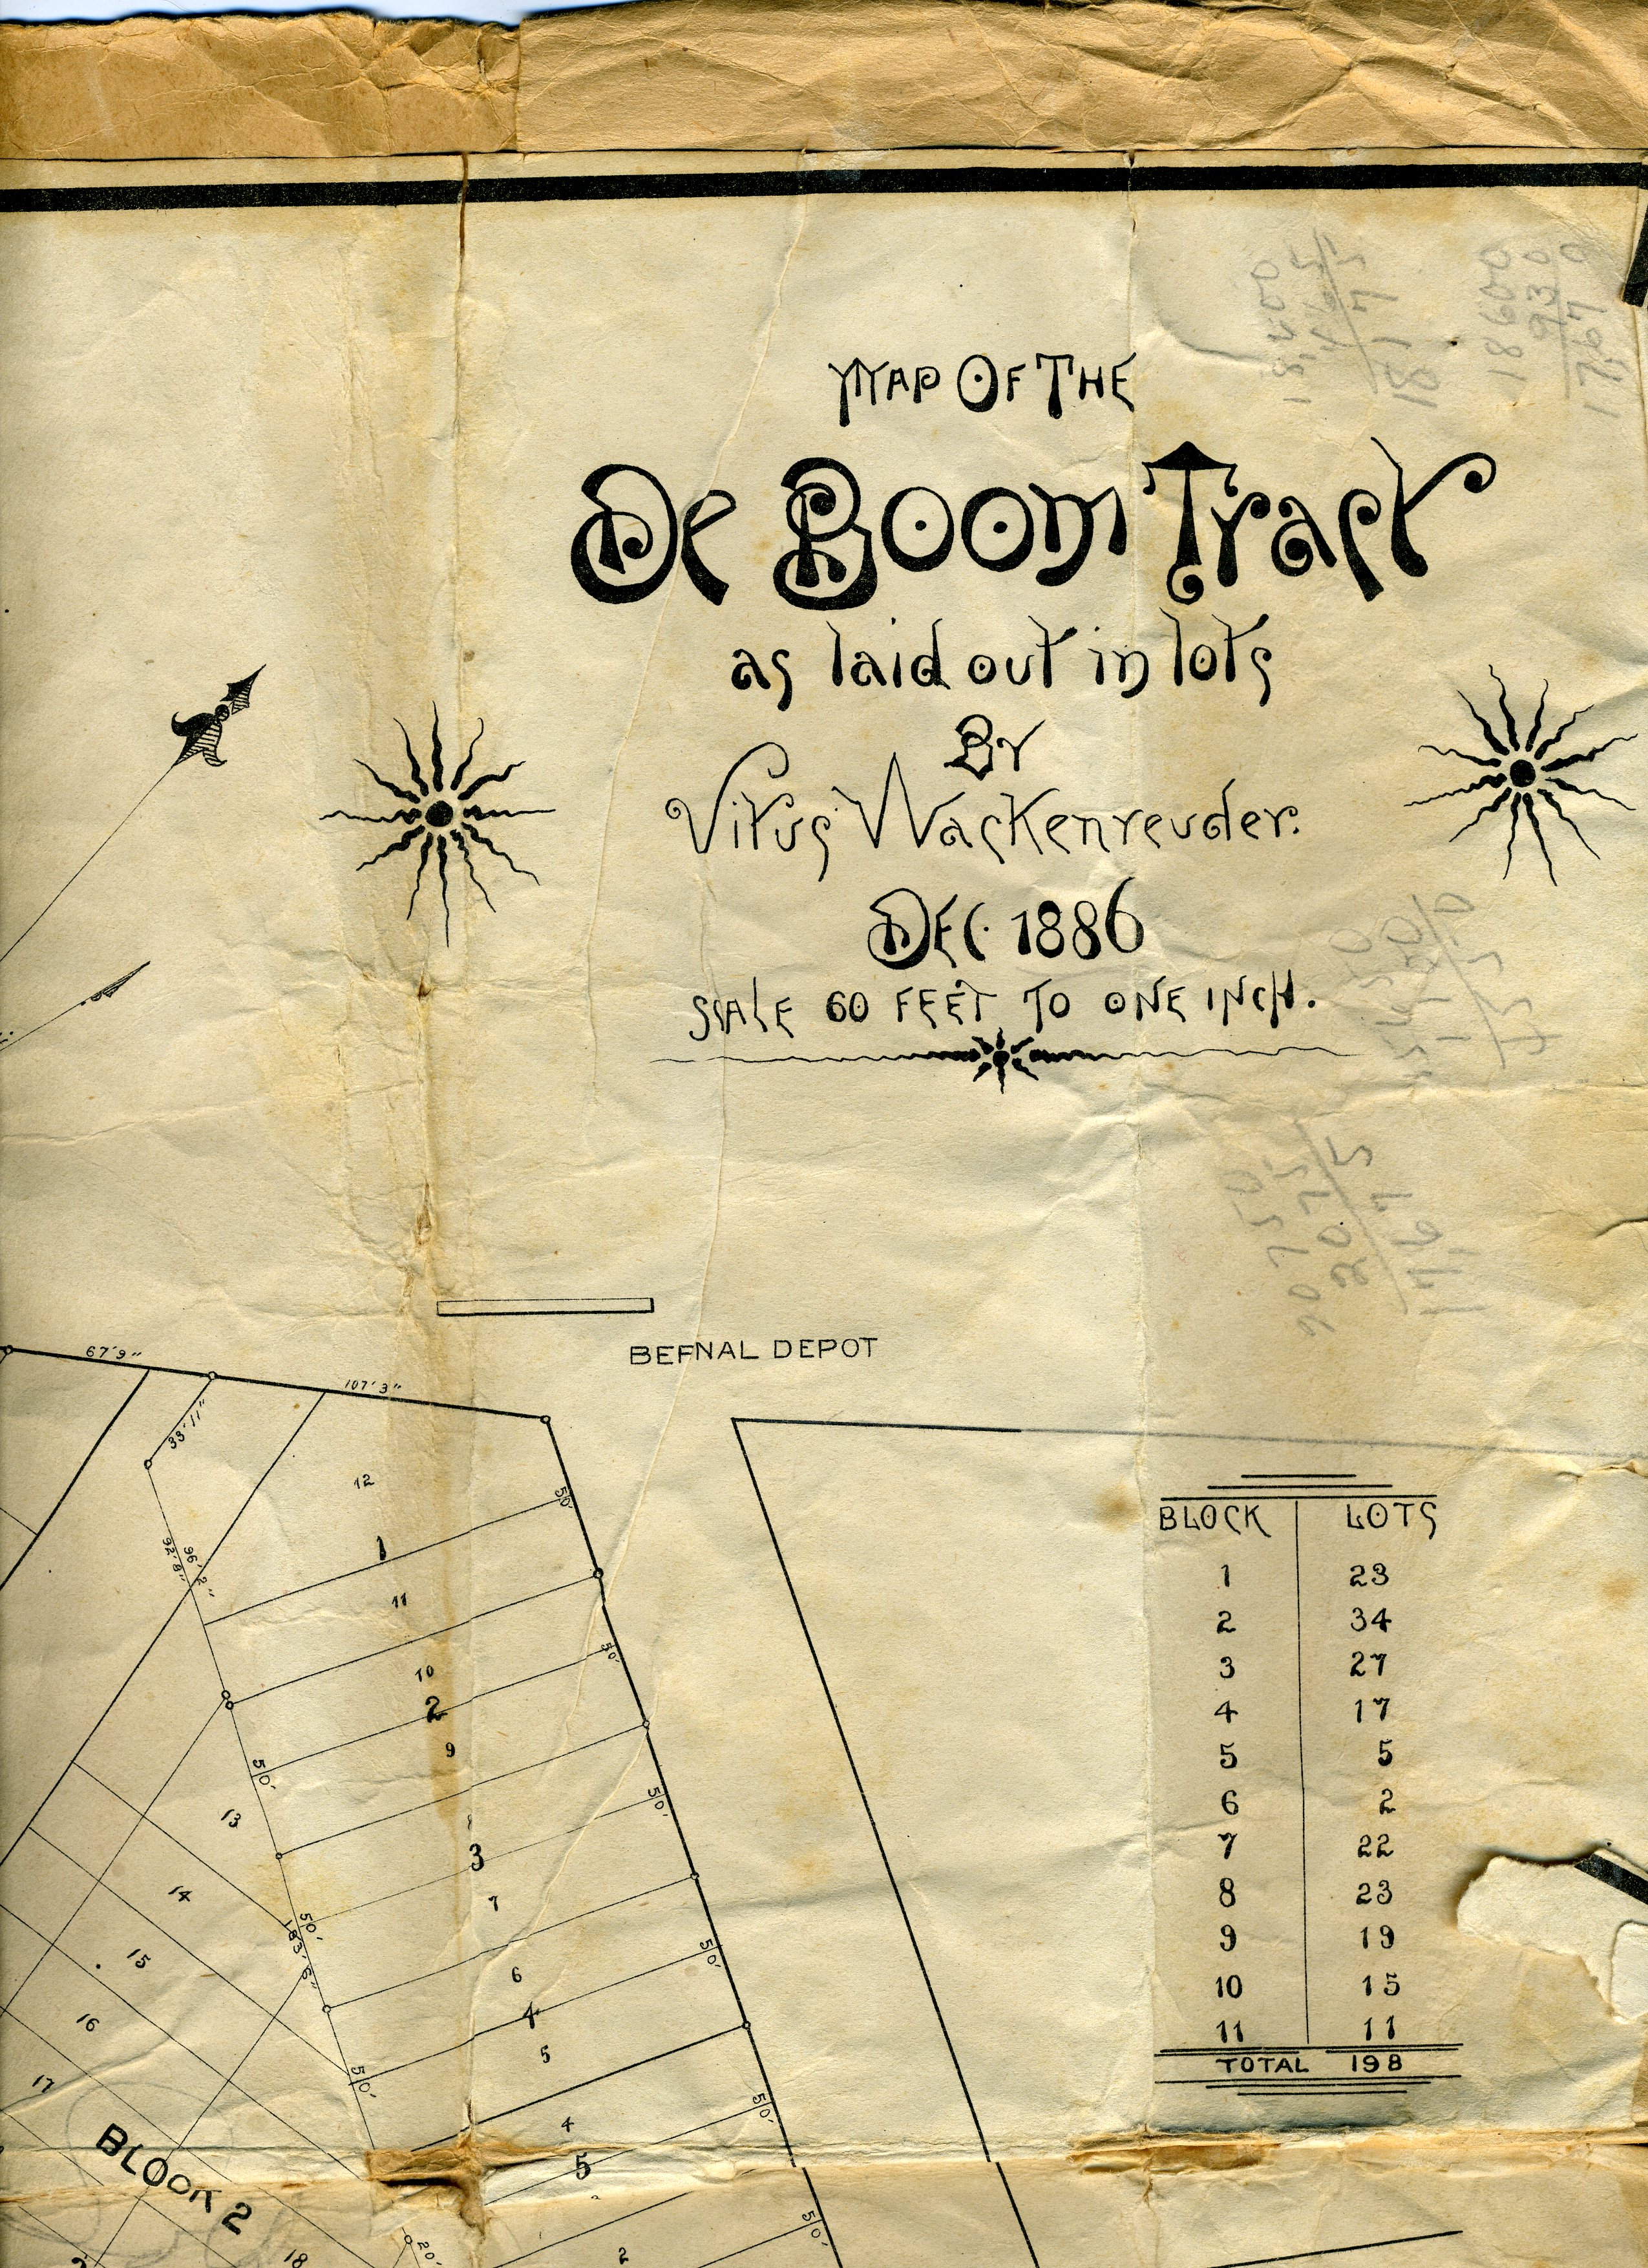 MAP OF THE
De Boom Tract
as laid out in lots
BY
Vitus Wackenreuder.
DEC. 1886
SCALE 60 FEET TO ONE INCH.
BERNAL DEPOT
67'9"
107'3"
33'11"
12
50'
1
96'2"
92'8"
11
10
50'
2
9
50'
13
50'
3
7
14
50'
183'6"
15
6
50'
4
16
5
50'
17
4
50'
BLOCK 2
5
50'
20'
18
2
BLOCK LOTS
1 23
2 34
3 27
4 17
5 5
6 2
7 22
8 23
9 19
10 15
11 11
TOTAL 198
18600
930
17670